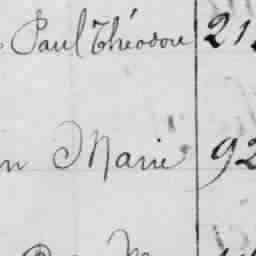 Paul Théodore 21
n Marie 92